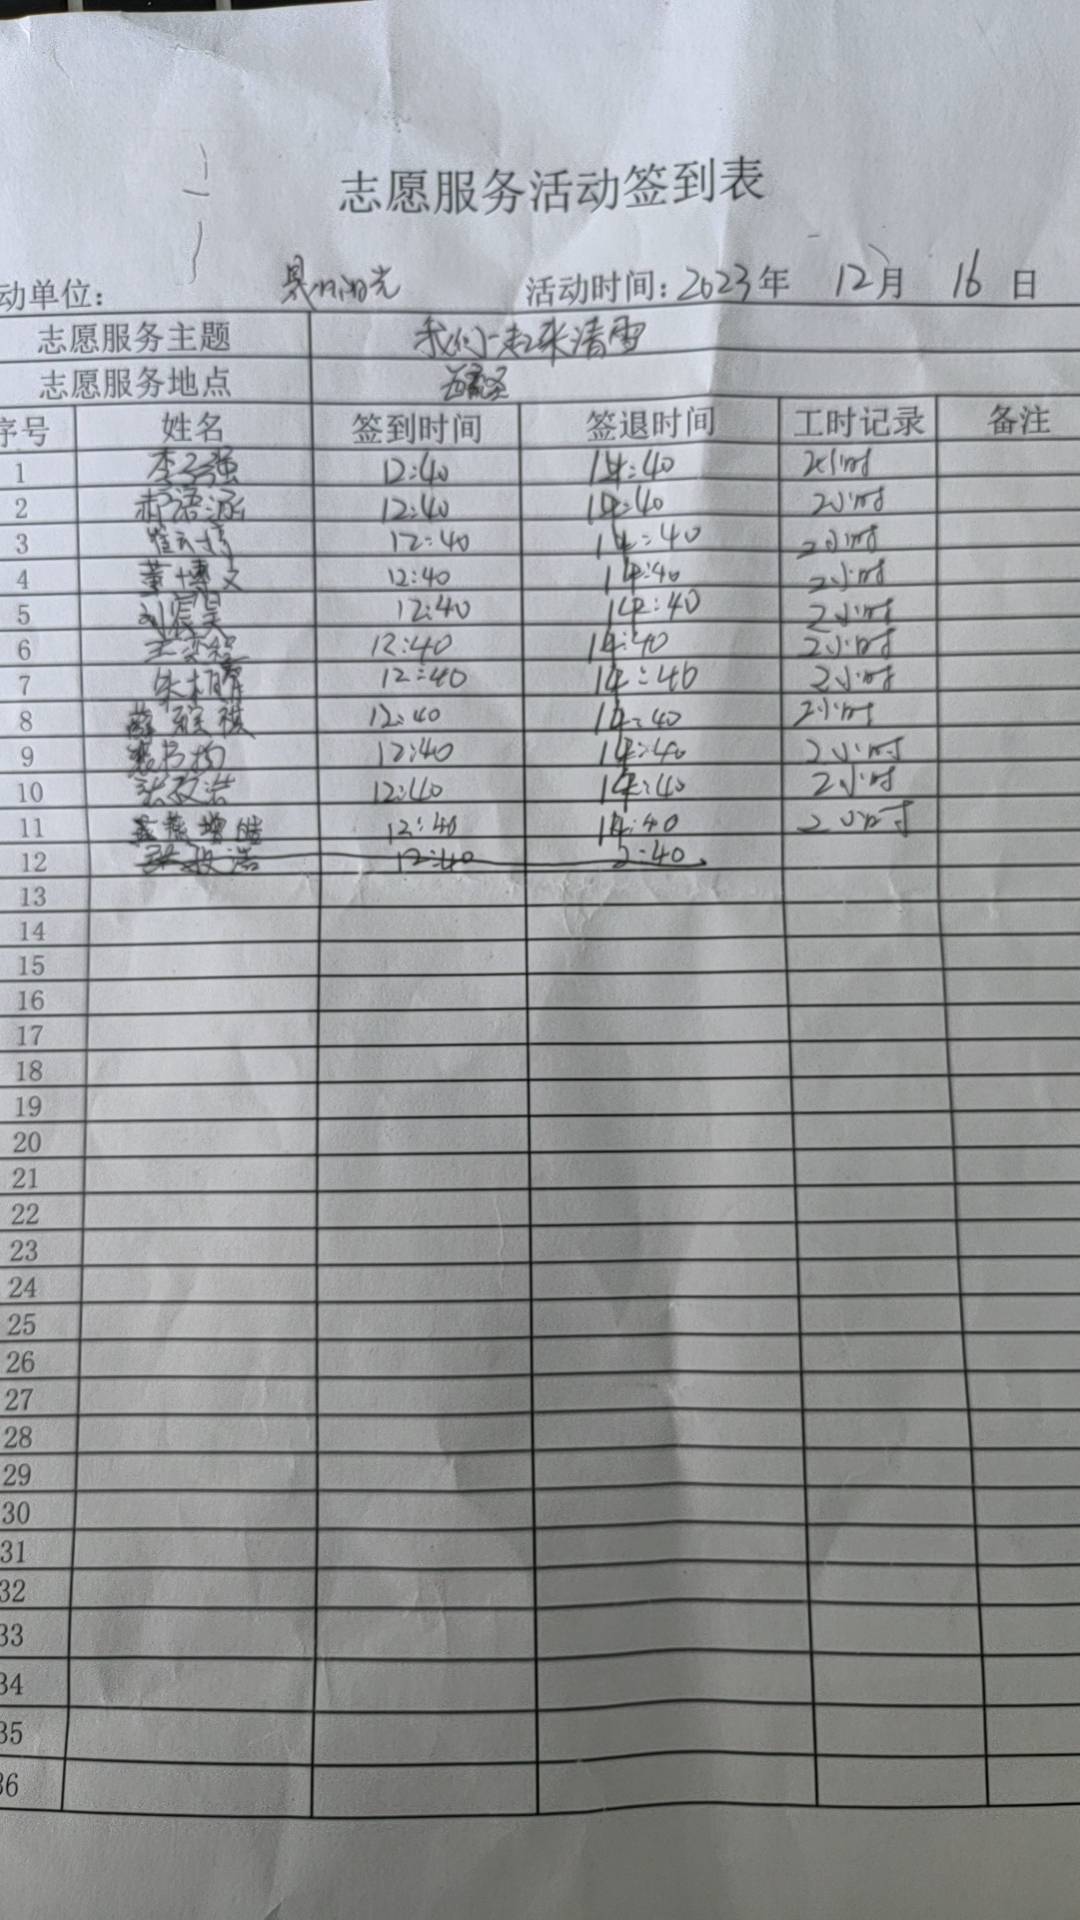 志愿服务活动签到表
动单位: 活动时间: 2023年 12月 16日
志愿服务主题 我们一起来清雪
志愿服务地点
序号 姓名 签到时间 签退时间 工时记录 备注
1 李子强 12:40 14:40 2小时
2 郝语涵 12:40 14:40 2小时
3 12:40 14:40 2小时
4 董博文 12:40 14:40 2小时
5 刘宸昊 12:40 14:40 2小时
6 12:40 14:40 2小时
7 12:40 14:40 2小时
8 12:40 14:40 2小时
9 12:40 14:40 2小时
10 12:40 14:40 2小时
11 12:40 14:40 2小时
12 12:40 2:40
13
14
15
16
17
18
19
20
21
22
23
24
25
26
27
28
29
30
31
32
33
34
35
36